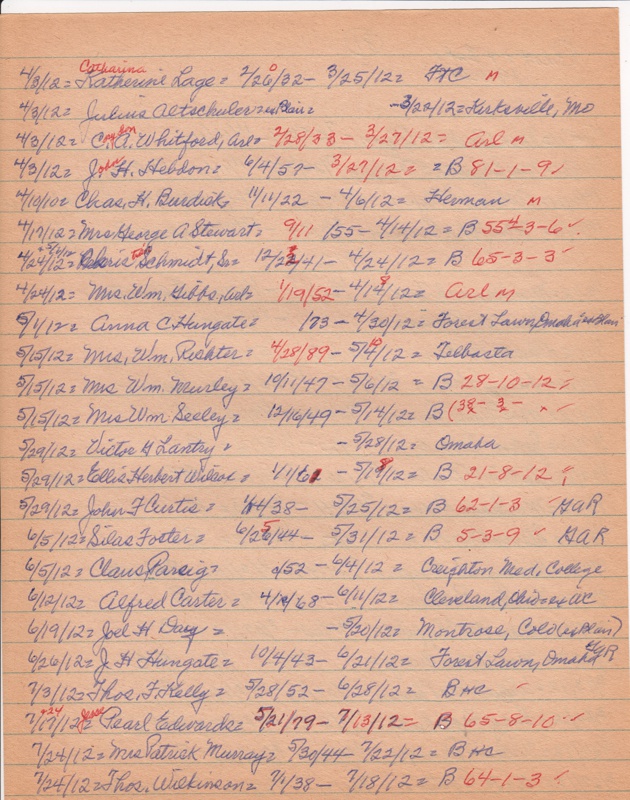 4/3/12 = Catharina Katherine Lage = 2/26/32 - 3/25/12 = FTC M
4/3/12 = Julius Altschuler = ex Blair = - 3/22/12 = Kirksville, Mo
4/3/12 = C. A. Whitford, Arl = 2/28/33 - 3/27/12 = Arl M
4/3/12 = John H. Hebdon = 6/4/57 - 3/27/12 = = B 81-1-9 ✓
4/10/10 = Chas. H. Burdick = 11/11/22 - 4/6/12 = Herman M
4/17/12 = Mrs George A Stewart = 9/11 /55 - 4/14/12 = B 55-3-6 ✓
4/24/12 = Schmidt, Sr = 12/ /41 - 4/24/12 = B 65-3-3 ✓
4/24/12 = Mrs. Wm. Gibbs, Arl = 1/19/52 - 4/ /12 = Arl M
5/1/12 = Anna C Hungate = /73 - 4/30/12 = Forest Lawn, Omaha = ex Blair
5/15/12 = Mrs, Wm, Richter = 4/28/89 - 5/ /12 = Telbasta
5/15/12 = Mrs Wm. Mursley = 10/11/47 - 5/6/12 = B 28-10-12 ✓
5/15/12 = Mrs Wm Seeley = 12/16/49 - 5/14/12 = B (38- 3- x ✓
5/29/12 = Victor G Lantry = - 5/28/12 = Omaha
5/29/12 = Ellis Herbert Wilcox = 4/1/ - 5/ /12 = B 21-8-12 ✓
5/29/12 = John F Curtis = /38 - 5/25/12 = B 62-1-3 ✓ GAR
6/5/12 = Silas Foster = 6/ /44 - 5/31/12 = B 5-3-9 ✓ GAR
6/5/12 = Claus Parsig = /52 - 6/4/12 = Creighton Med, College
6/12/12 = Alfred Carter = 4/ /68 - 6/11/12 = Cleveland, Ohio = ex AC
6/19/12 = Joel H Day = - 5/20/12 = Montrose, Colo (ex Blair)
6/26/12 = J H Hungate = 10/4/43 - 6/21/12 = Forest Lawn, Omaha GAR
7/3/12 = Thos, F. Kelly = 5/28/52 - 6/28/12 = B HC ✓
7/17/12 +24 = Pearl Edwards = 5/21/79 - 7/13/12 = B 65-8-10 ✓
7/24/12 = Mrs Patrick Murray = 5/30/44 - 7/22/12 = B HC
7/24/12 = Thos, Wilkinson = 7/1/38 - 7/18/12 = B 64-1-3 ✓